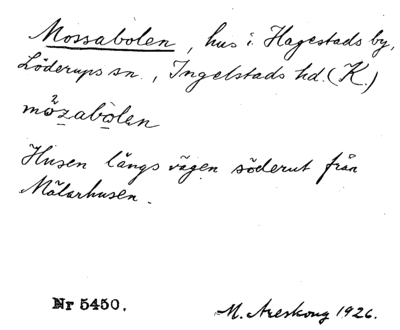 Mossabolen, hus i Hagestads by,
Löderups sn., Ingelstads hd. (K.)
mözabolen
Husen längs vägen söderut från
Mälarhusen.
Nr 5450.
M. Areskoug 1926.